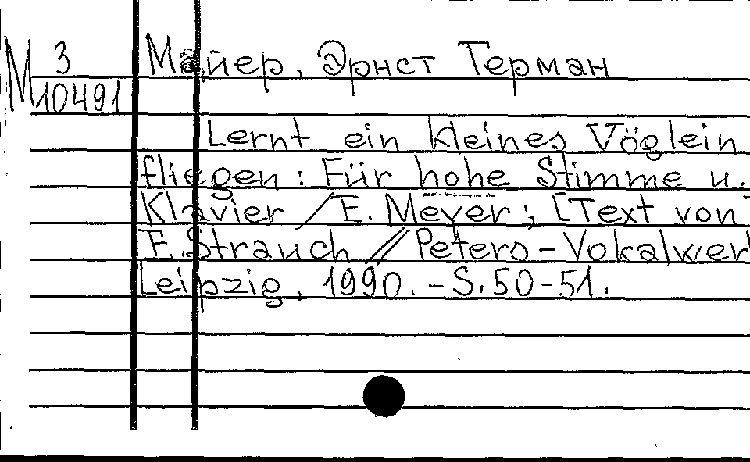 М 3
10491
Майер, Эрнст Герман
Lernt ein kleines Vöglein
fliegen: Für hohe Stimme u.
Klavier / E. Meyer; [Text von
F. Strauch // Peters-Vokalwer
Leipzig, 1990. - S. 50-51.